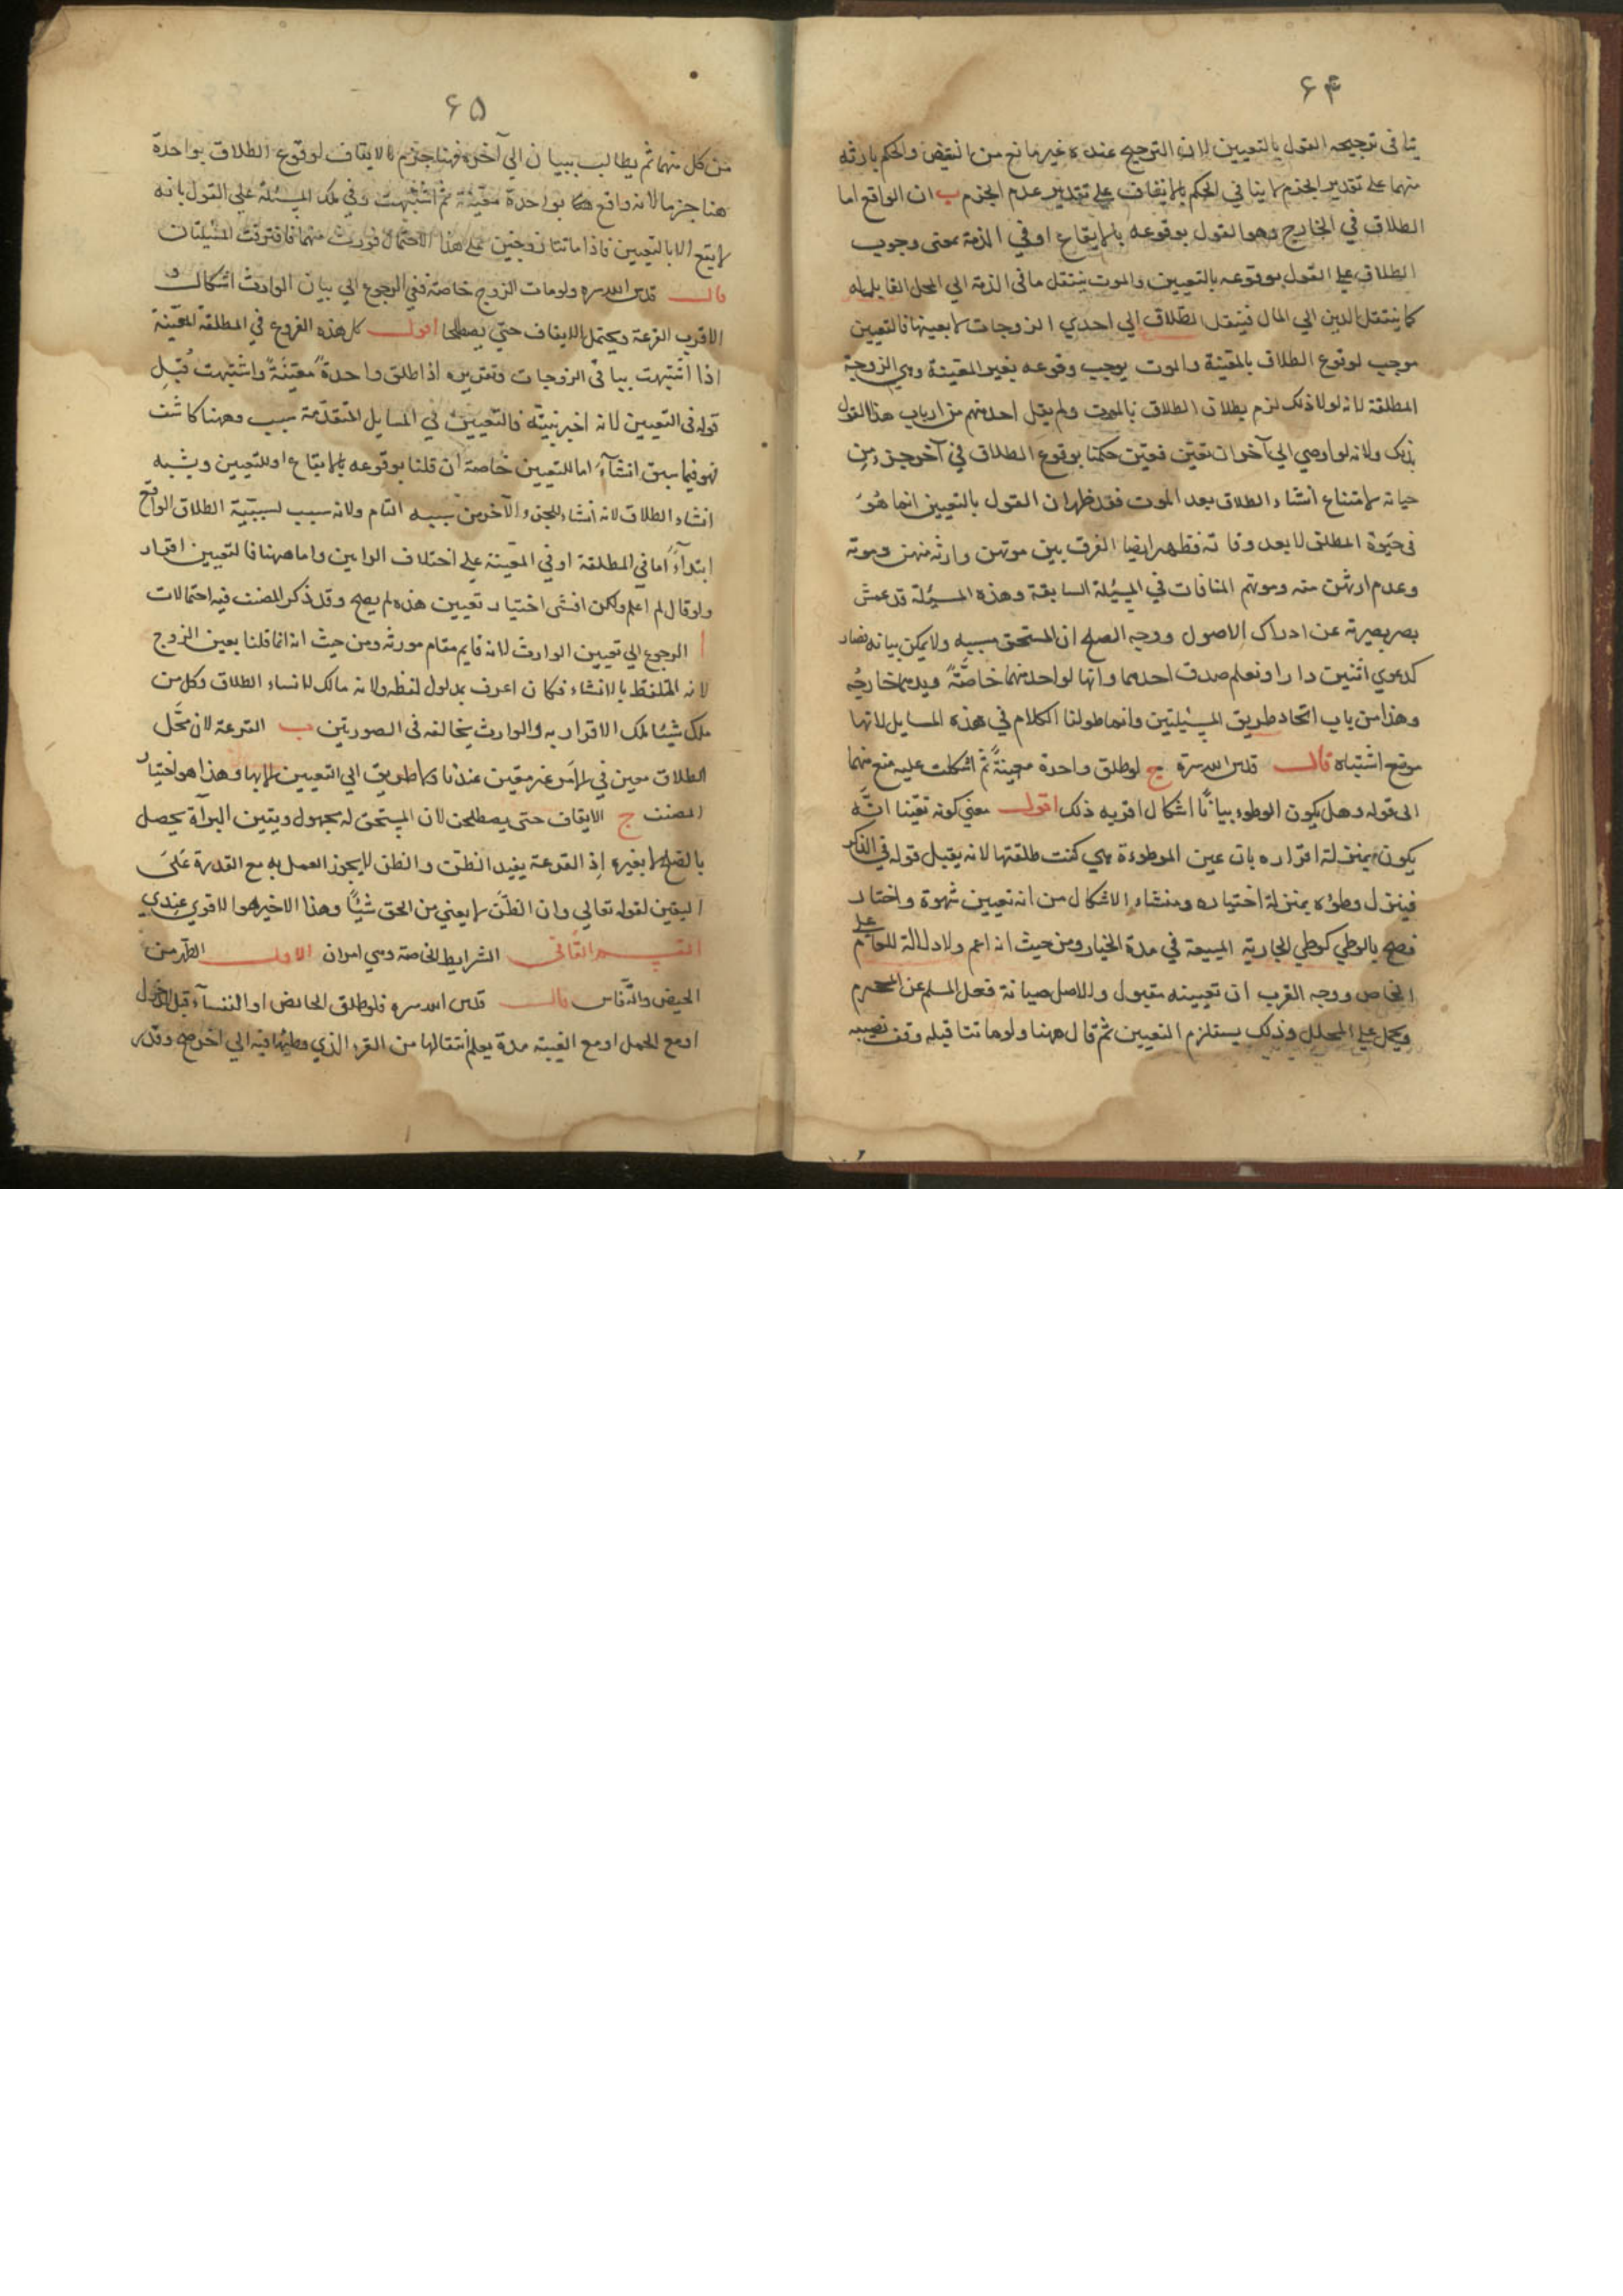 ۶۴
ينافى ترجيحه القول بالتعيين لان الترجيح عنده غير مانع من النقيض والحكم بارثه
منهما على تقدير الجزم لا ينافي الحكم بالايقاف على تقدير عدم الجزم ب ان الواقع اما
الطلاق في الخارج وهو القول بوقوعه بالايقاع او في الذمة بمعنى وجوب
الطلاق على القول بوقوعه بالتعيين والموت ينتقل ما في الذمة الي المحل القابل له
كما ينتقل الدين الي المال فينتقل الطلاق الي احدي الزوجات لا بعينها فالتعيين
موجب لوقوع الطلاق بالمعينة والموت يوجب وقوعه بغير المعينة وهي الزوجة
المطلقة لانه لولا ذلك لزم بطلان الطلاق بالموت ولم يقل احد منهم من ارباب هذا القول
بذلك ولانه لو اوصي الي آخر ان تعين فعين حكمنا بوقوع الطلاق في آخر جزء من
حياته لامتناع انشاء الطلاق بعد الموت فقد ظهر ان القول بالتعيين انما هو
فى حيوة المطلق لا بعد وفاته فظهر ايضا الفرق بين موتهن وارثه منهن وموته
وعدم ارثهن منه وموتهم المنافات في المسئلة السابقة وهذه المسئلة قد عمش
بصر بصيرته عن ادراك الاصول ووجه الصلح ان المستحق بسببه ولا يمكن بيانه فصار
كدعوي اثنين دارا ونعلم صدق احدهما وانها لواحد منهما خاصة ويدهما خارجه
وهذا من باب اتحاد طريق المسئلتين وانما طولنا الكلام في هذه المسايل لانها
موضع اشتباه قال قدس الله سره ج لو طلق واحدة معينة ثم اشكلت عليه منع منهما
الى قوله وهل يكون الوطوء بيانا اشكال اقربه ذلك اقول معني كونه تعينا انه
يكون بمنزلة اقراره بان عين الموطوءة هي كنت طلقتها لانه يقبل قوله في الذكر
فينزل وطؤه بمنزلة اختياره ومنشاء الاشكال من انه تعيين شهوة واختار
فصح بالوطي كوطي الجارية المبيعة في مدة الخيار ومن حيث انه اعم ولا دلالة للعام على
الخاص ووجه القرب ان تعيينه مقبول والاصل صيانة فعل المسلم عن المحرم
ويحمل على المحلل وذلك يستلزم التعيين ثم قال ههنا ولو ماتتا قبله وقف نصيبه
۶۵
من كل منهما ثم يطالب ببيان الي آخره فهنا جزم بالايقاف لوقوع الطلاق بواحدة
هنا جزما لانه واقع هنا بواحدة معينة ثم اشتبهت وفي تلك المسئلة على القول بانه
لا يقع الا بالتعيين فاذا ماتتا زوجتين على هذا الاحتمال فورث منهما فافترقت المسئلتان
قال قدس الله سره ولو مات الزوج خاصة ففي الرجوع الي بيان الوارث اشكال و
الاقرب القرعة ويحتمل الايقاف حتى يصطلحا اقول كل هذه الفروع في المطلقة المعينة
اذا اشتبهت بباقي الزوجات وتقريره اذا طلق واحدة معينة واشتبهت قبل
قوله فى التعيين لانه اخبر بنيته فالتعيين في المسايل المتقدمة سبب وههنا كاشف
فهو فيما سبق انشآء اما للتعيين خاصة ان قلنا بوقوعه بالايقاع او للتعيين ويشبه
انشاء الطلاق لانه انشاء للجزء الآخر من سببه التام ولانه سبب لسببية الطلاق الواقع
ابتدآء اما في المطلقة او في المعينة على اختلاف الرايين واما ههنا فالتعيين اقرار
ولو قال لم اعلم ولكن انشى اختيار تعيين هذه لم يصح وقد ذكر المصنف فيه احتمالات
أ الرجوع الي تعيين الوارث لانه قايم مقام مورثه ومن حيث انه انما قلنا بعين الزوج
لانه المتلفظ بالانشاء فكان اعرف بمدلول لفظه ولانه مالك لانساء الطلاق وكل من
ملك شيئا ملك الاقرار به والوارث يخالفه فى الصورتين ب القرعة لان محل
الطلاق معين في الامر غير معين عندنا ولا طريق الي التعيين الا بها وهذا هو اختيار
المصنف ج الايقاف حتى يصطلحن لان المستحق له مجهول ويقين البرآة يحصل
بالصلح لا بغيره اذ القرعة يفيد الظن والظن لا يجوز العمل به مع القدرة على
اليقين لقوله تعالي وان الظن لا يغني من الحق شيئا وهذا الاخير هو الاقوي عندي
القسم الثاني الشرايط الخاصة وهي امران الاول الطهر من
الحيض والنفاس قال قدس الله سره فلو طلق الحائض او النفسآء قبل الدخول
او مع الحمل او مع الغيبة مدة يعلم انتقالها من القرء الذي وطئها فيه الي اخر صح وقدر